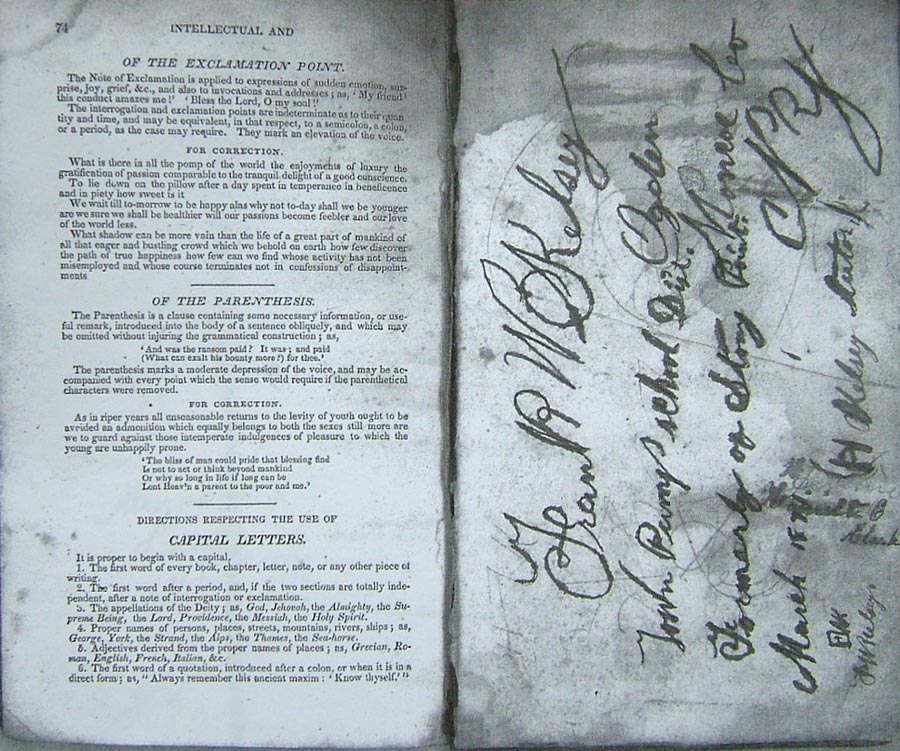 74
INTELLECTUAL AND
OF THE EXCLAMATION POINT.
The Note of Exclamation is applied to expressions of sudden emotion, sur-
prise, joy, grief, &c., and also to invocations and addresses; as, 'My friend!
this conduct amazes me!' 'Bless the Lord, O my soul!'
The interrogation and exclamation points are indeterminate as to their quan
tity and time, and may be equivalent, in that respect, to a semicolon, a colon,
or a period, as the case may require. They mark an elevation of the voice.
FOR CORRECTION.
What is there in all the pomp of the world the enjoyments of luxury the
gratification of passion comparable to the tranquil delight of a good conscience.
To lie down on the pillow after a day spent in temperance in beneficence
and in piety how sweet is it
We wait till to-morrow to be happy alas why not to-day shall we be younger
are we sure we shall be healthier will our passions become feebler and our love
of the world less.
What shadow can be more vain than the life of a great part of mankind of
all that eager and bustling crowd which we behold on earth how few discover
the path of true happiness how few can we find whose activity has not been
misemployed and whose course terminates not in confessions of disappoint-
ments
OF THE PARENTHESIS.
The Parenthesis is a clause containing some necessary information, or use-
ful remark, introduced into the body of a sentence obliquely, and which may
be omitted without injuring the grammatical construction; as,
'And was the ransom paid? It was; and paid
(What can exalt his bounty more?) for thee.'
The parenthesis marks a moderate depression of the voice, and may be ac-
companied with every point which the sense would require if the parenthetical
characters were removed.
FOR CORRECTION.
As in riper years all unseasonable returns to the levity of youth ought to be
avoided an admonition which equally belongs to both the sexes still more are
we to guard against those intemperate indulgences of pleasure to which the
young are unhappily prone.
'The bliss of man could pride that blessing find
Is not to act or think beyond mankind
Or why so long in life if long can be
Lent Heav'n a parent to the poor and me.'
DIRECTIONS RESPECTING THE USE OF
CAPITAL LETTERS.
It is proper to begin with a capital,
1. The first word of every book, chapter, letter, note, or any other piece of
writing.
2. The first word after a period, and, if the two sections are totally inde-
pendent, after a note of interrogation or exclamation.
3. The appellations of the Deity; as, God, Jehovah, the Almighty, the Su-
preme Being, the Lord, Providence, the Messiah, the Holy Spirit.
4. Proper names of persons, places, streets, mountains, rivers, ships; as,
George, York, the Strand, the Alps, the Thames, the Sea-horse.
5. Adjectives derived from the proper names of places; as, Grecian, Ro-
man, English, French, Italian, &c.
6. The first word of a quotation, introduced after a colon, or when it is in a
direct form; as, "Always remember this ancient maxim: 'Know thyself.'"
Frank W Kelsey
John school Dist. Ogden
Formerly of Stony Point. Monroe Co
March 18
Kelsey
Clark
FWK
FWKelsey